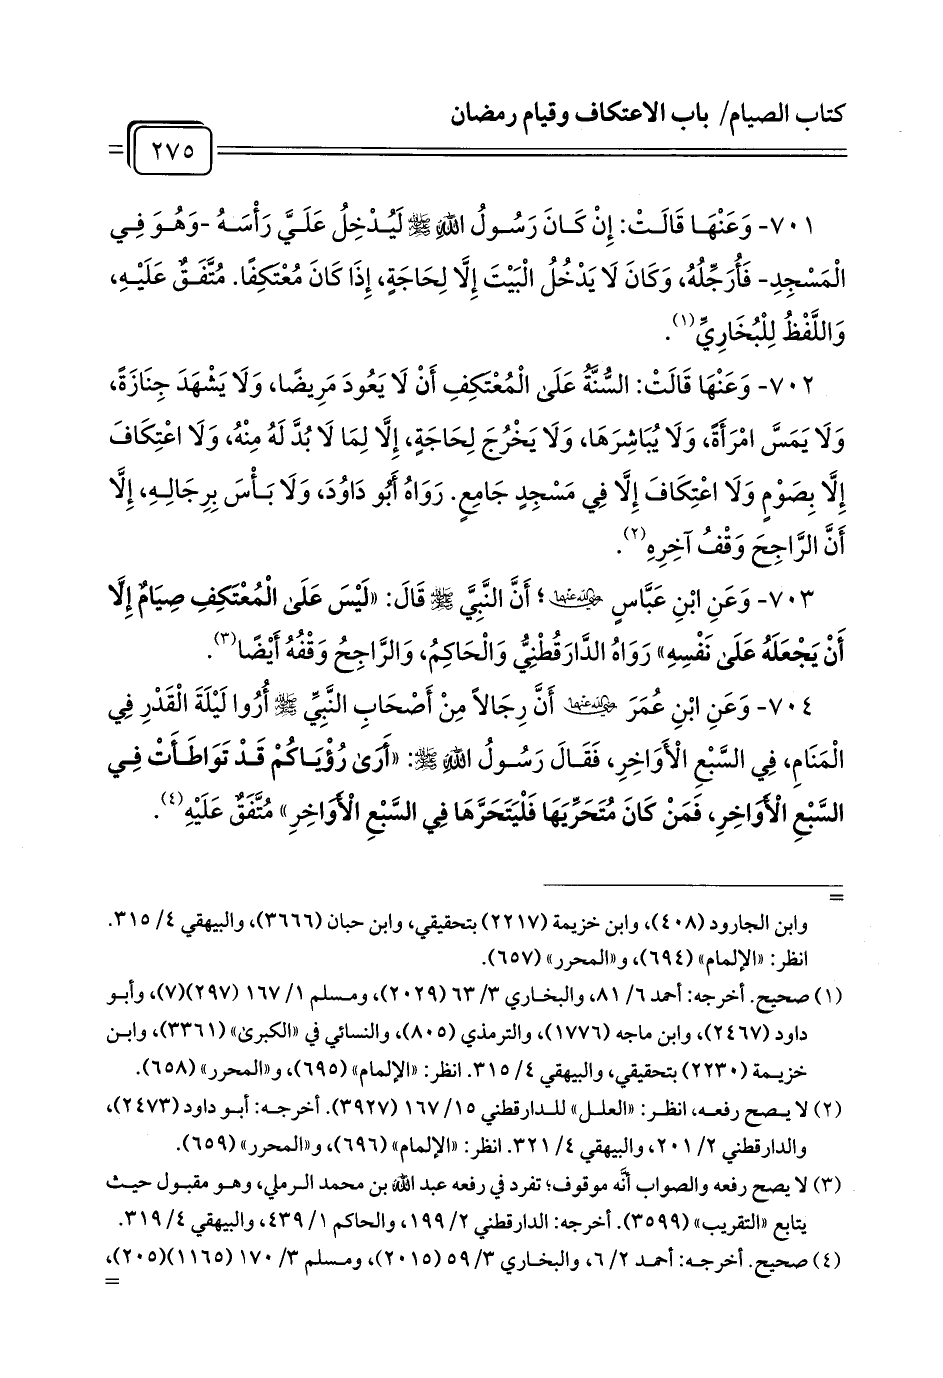 كتاب الصيام/ باب الاعتكاف وقيام رمضان
٢٧٥
٧٠١- وَعَنْهَا قَالَتْ: إِنْ كَانَ رَسُولُ اللهِ ﷺ لَيُدْخِلُ عَلَيَّ رَأْسَهُ -وَهُوَ فِي
الْمَسْجِدِ- فَأُرَجِّلُهُ، وَكَانَ لَا يَدْخُلُ الْبَيْتَ إِلَّا لِحَاجَةٍ، إِذَا كَانَ مُعْتَكِفًا. مُتَّفَقٌ عَلَيْهِ،
وَاللَّفْظُ لِلْبُخَارِيِّ(١).
٧٠٢- وَعَنْهَا قَالَتْ: السُّنَّةُ عَلَى الْمُعْتَكِفِ أَنْ لَا يَعُودَ مَرِيضًا، وَلَا يَشْهَدَ جِنَازَةً،
وَلَا يَمَسَّ امْرَأَةً، وَلَا يُبَاشِرَهَا، وَلَا يَخْرُجَ لِحَاجَةٍ، إِلَّا لِمَا لَا بُدَّ لَهُ مِنْهُ، وَلَا اعْتِكَافَ
إِلَّا بِصَوْمٍ وَلَا اعْتِكَافَ إِلَّا فِي مَسْجِدٍ جَامِعٍ. رَوَاهُ أَبُو دَاوُدَ، وَلَا بَأْسَ بِرِجَالِهِ، إِلَّا
أَنَّ الرَّاجِحَ وَقْفُ آخِرِهِ(٢).
٧٠٣- وَعَنِ ابْنِ عَبَّاسٍ رضي الله عنهما؛ أَنَّ النَّبِيَّ ﷺ قَالَ: «لَيْسَ عَلَى الْمُعْتَكِفِ صِيَامٌ إِلَّا
أَنْ يَجْعَلَهُ عَلَى نَفْسِهِ» رَوَاهُ الدَّارَقُطْنِيُّ وَالْحَاكِمُ، وَالرَّاجِحُ وَقْفُهُ أَيْضًا(٣).
٧٠٤- وَعَنِ ابْنِ عُمَرَ رضي الله عنهما أَنَّ رِجَالاً مِنْ أَصْحَابِ النَّبِيِّ ﷺ أُرُوا لَيْلَةَ الْقَدْرِ فِي
الْمَنَامِ، فِي السَّبْعِ الْأَوَاخِرِ، فَقَالَ رَسُولُ اللهِ ﷺ: «أَرَى رُؤْيَاكُمْ قَدْ تَوَاطَأَتْ فِي
السَّبْعِ الْأَوَاخِرِ، فَمَنْ كَانَ مُتَحَرِّيَهَا فَلْيَتَحَرَّهَا فِي السَّبْعِ الْأَوَاخِرِ» مُتَّفَقٌ عَلَيْهِ(٤).
=
وابن الجارود (٤٠٨)، وابن خزيمة (٢٢١٧) بتحقيقي، وابن حبان (٣٦٦٦)، والبيهقي ٤/ ٣١٥.
انظر: «الإلمام» (٦٩٤)، و«المحرر» (٦٥٧).
(١) صحيح. أخرجه: أحمد ٦/ ٨١، والبخاري ٣/ ٦٣ (٢٠٢٩)، ومسلم ١/ ١٦٧ (٢٩٧)(٧)، وأبو
داود (٢٤٦٧)، وابن ماجه (١٧٧٦)، والترمذي (٨٠٥)، والنسائي في «الكبرى» (٣٣٦١)، وابن
خزيمة (٢٢٣٠) بتحقيقي، والبيهقي ٤/ ٣١٥. انظر: «الإلمام» (٦٩٥)، و«المحرر» (٦٥٨).
(٢) لا يصح رفعه، انظر: «العلل» للدارقطني ١٥/ ١٦٧ (٣٩٢٧). أخرجه: أبو داود (٢٤٧٣)،
والدارقطني ٢/ ٢٠١، والبيهقي ٤/ ٣٢١. انظر: «الإلمام» (٦٩٦)، و«المحرر» (٦٥٩).
(٣) لا يصح رفعه والصواب أنَّه موقوف؛ تفرد في رفعه عبد الله بن محمد الرملي، وهو مقبول حيث
يتابع «التقريب» (٣٥٩٩). أخرجه: الدارقطني ٢/ ١٩٩، والحاكم ١/ ٤٣٩، والبيهقي ٤/ ٣١٩.
(٤) صحيح. أخرجه: أحمد ٢/ ٦، والبخاري ٣/ ٥٩ (٢٠١٥)، ومسلم ٣/ ١٧٠ (١١٦٥)(٢٠٥)،
=